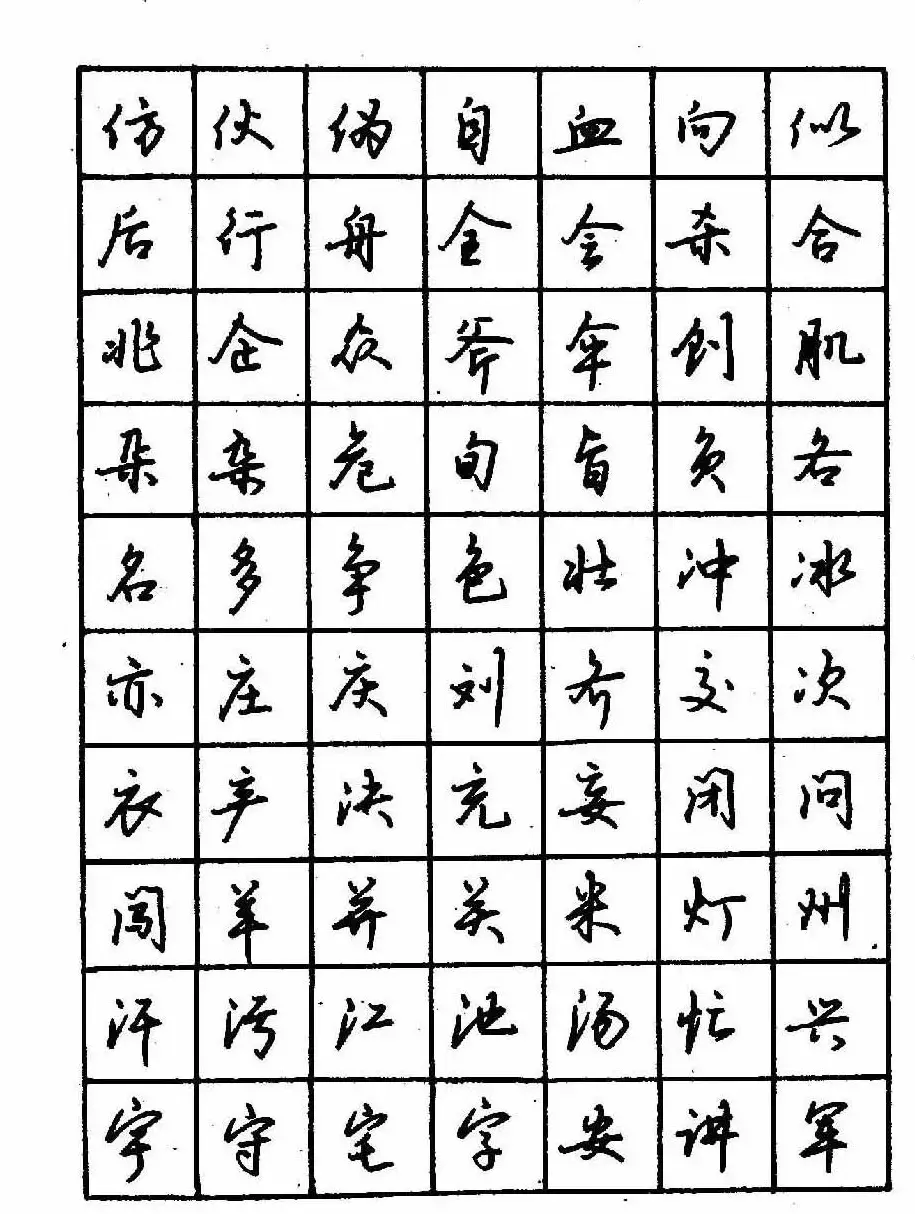 仿 伙 伪 自 血 向 似
后 行 舟 全 会 杀 合
兆 企 众 爷 伞 创 肌
朵 杂 危 旬 旨 负 各
名 多 争 色 壮 冲 冰
亦 庄 庆 刘 齐 交 次
衣 产 决 充 妄 闭 问
闯 羊 并 关 米 灯 州
汗 污 江 池 汤 忙 兴
宇 守 宅 字 安 讲 军